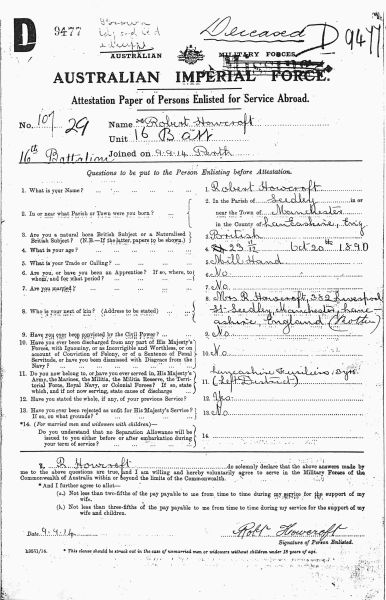 D 9477 Deceased D 9477
AUSTRALIAN MILITARY FORCES.
Missing
AUSTRALIAN IMPERIAL FORCE.
Attestation Paper of Persons Enlisted for Service Abroad.
No. 107 29 Name Robert Howcroft
Unit 16 Batt
16th Battalion Joined on 9.9.14 Perth
Questions to be put to the Person Enlisting before Attestation.
1. What is your Name? 1. Robert Howcroft
2. In or near what Parish or Town were you born? 2. In the Parish of Seedley in or
near the Town of Manchester
in the County of Lancashire, Eng
3. Are you a natural born British Subject or a Naturalised British
Subject? (N.B.—If the latter, papers to be shown.) 3. British
4. What is your age? 4. 23 Oct 20th 1890
5. What is your Trade or Calling? 5. Mill Hand
6. Are you, or have you been an Apprentice? If so, where, to
whom, and for what period? 6. No
7. Are you married? 7. No
8. Who is your next of kin? (Address to be stated) 8. Mrs R. Howcroft, 382 Liverpool
St Seedley, Manchester, Lanc-
ashire, England (Mother)
9. Have you ever been convicted by the Civil Power? 9. No
10. Have you ever been discharged from any part of His Majesty's
Forces, with Ignominy, or as Incorrigible and Worthless, or on
account of Conviction of Felony, or of a Sentence of Penal
Servitude, or have you been dismissed with Disgrace from the
Navy? 10. No
11. Do you now belong to, or have you ever served in, His Majesty's
Army, the Marines, the Militia, the Militia Reserve, the Terri-
torial Force, Royal Navy, or Colonial Forces? If so, state
which, and if not now serving, state cause of discharge 11. Lancashire Fusiliers
(Left District)
12. Have you stated the whole, if any, of your previous Service? 12. Yes
13. Have you ever been rejected as unfit for His Majesty's Service?
If so, on what grounds? 13. No
*14. (For married men and widowers with children)—
Do you understand that no Separation Allowance will be
issued to you either before or after embarkation during
your term of service? 14.
I, R. Howcroft do solemnly declare that the above answers made by
me to the above questions are true, and I am willing and hereby voluntarily agree to serve in the Military Forces of the
Commonwealth of Australia within or beyond the limits of the Commonwealth.
* And I further agree to allot—
(a.) Not less than two-fifths of the pay payable to me from time to time during my service for the support of my
wife.
(b.) Not less than three-fifths of the pay payable to me from time to time during my service for the support of my
wife and children.
Date 9.9.14 Robt Howcroft
Signature of Person Enlisted.
* This clause should be struck out in the case of unmarried men or widowers without children under 18 years of age.